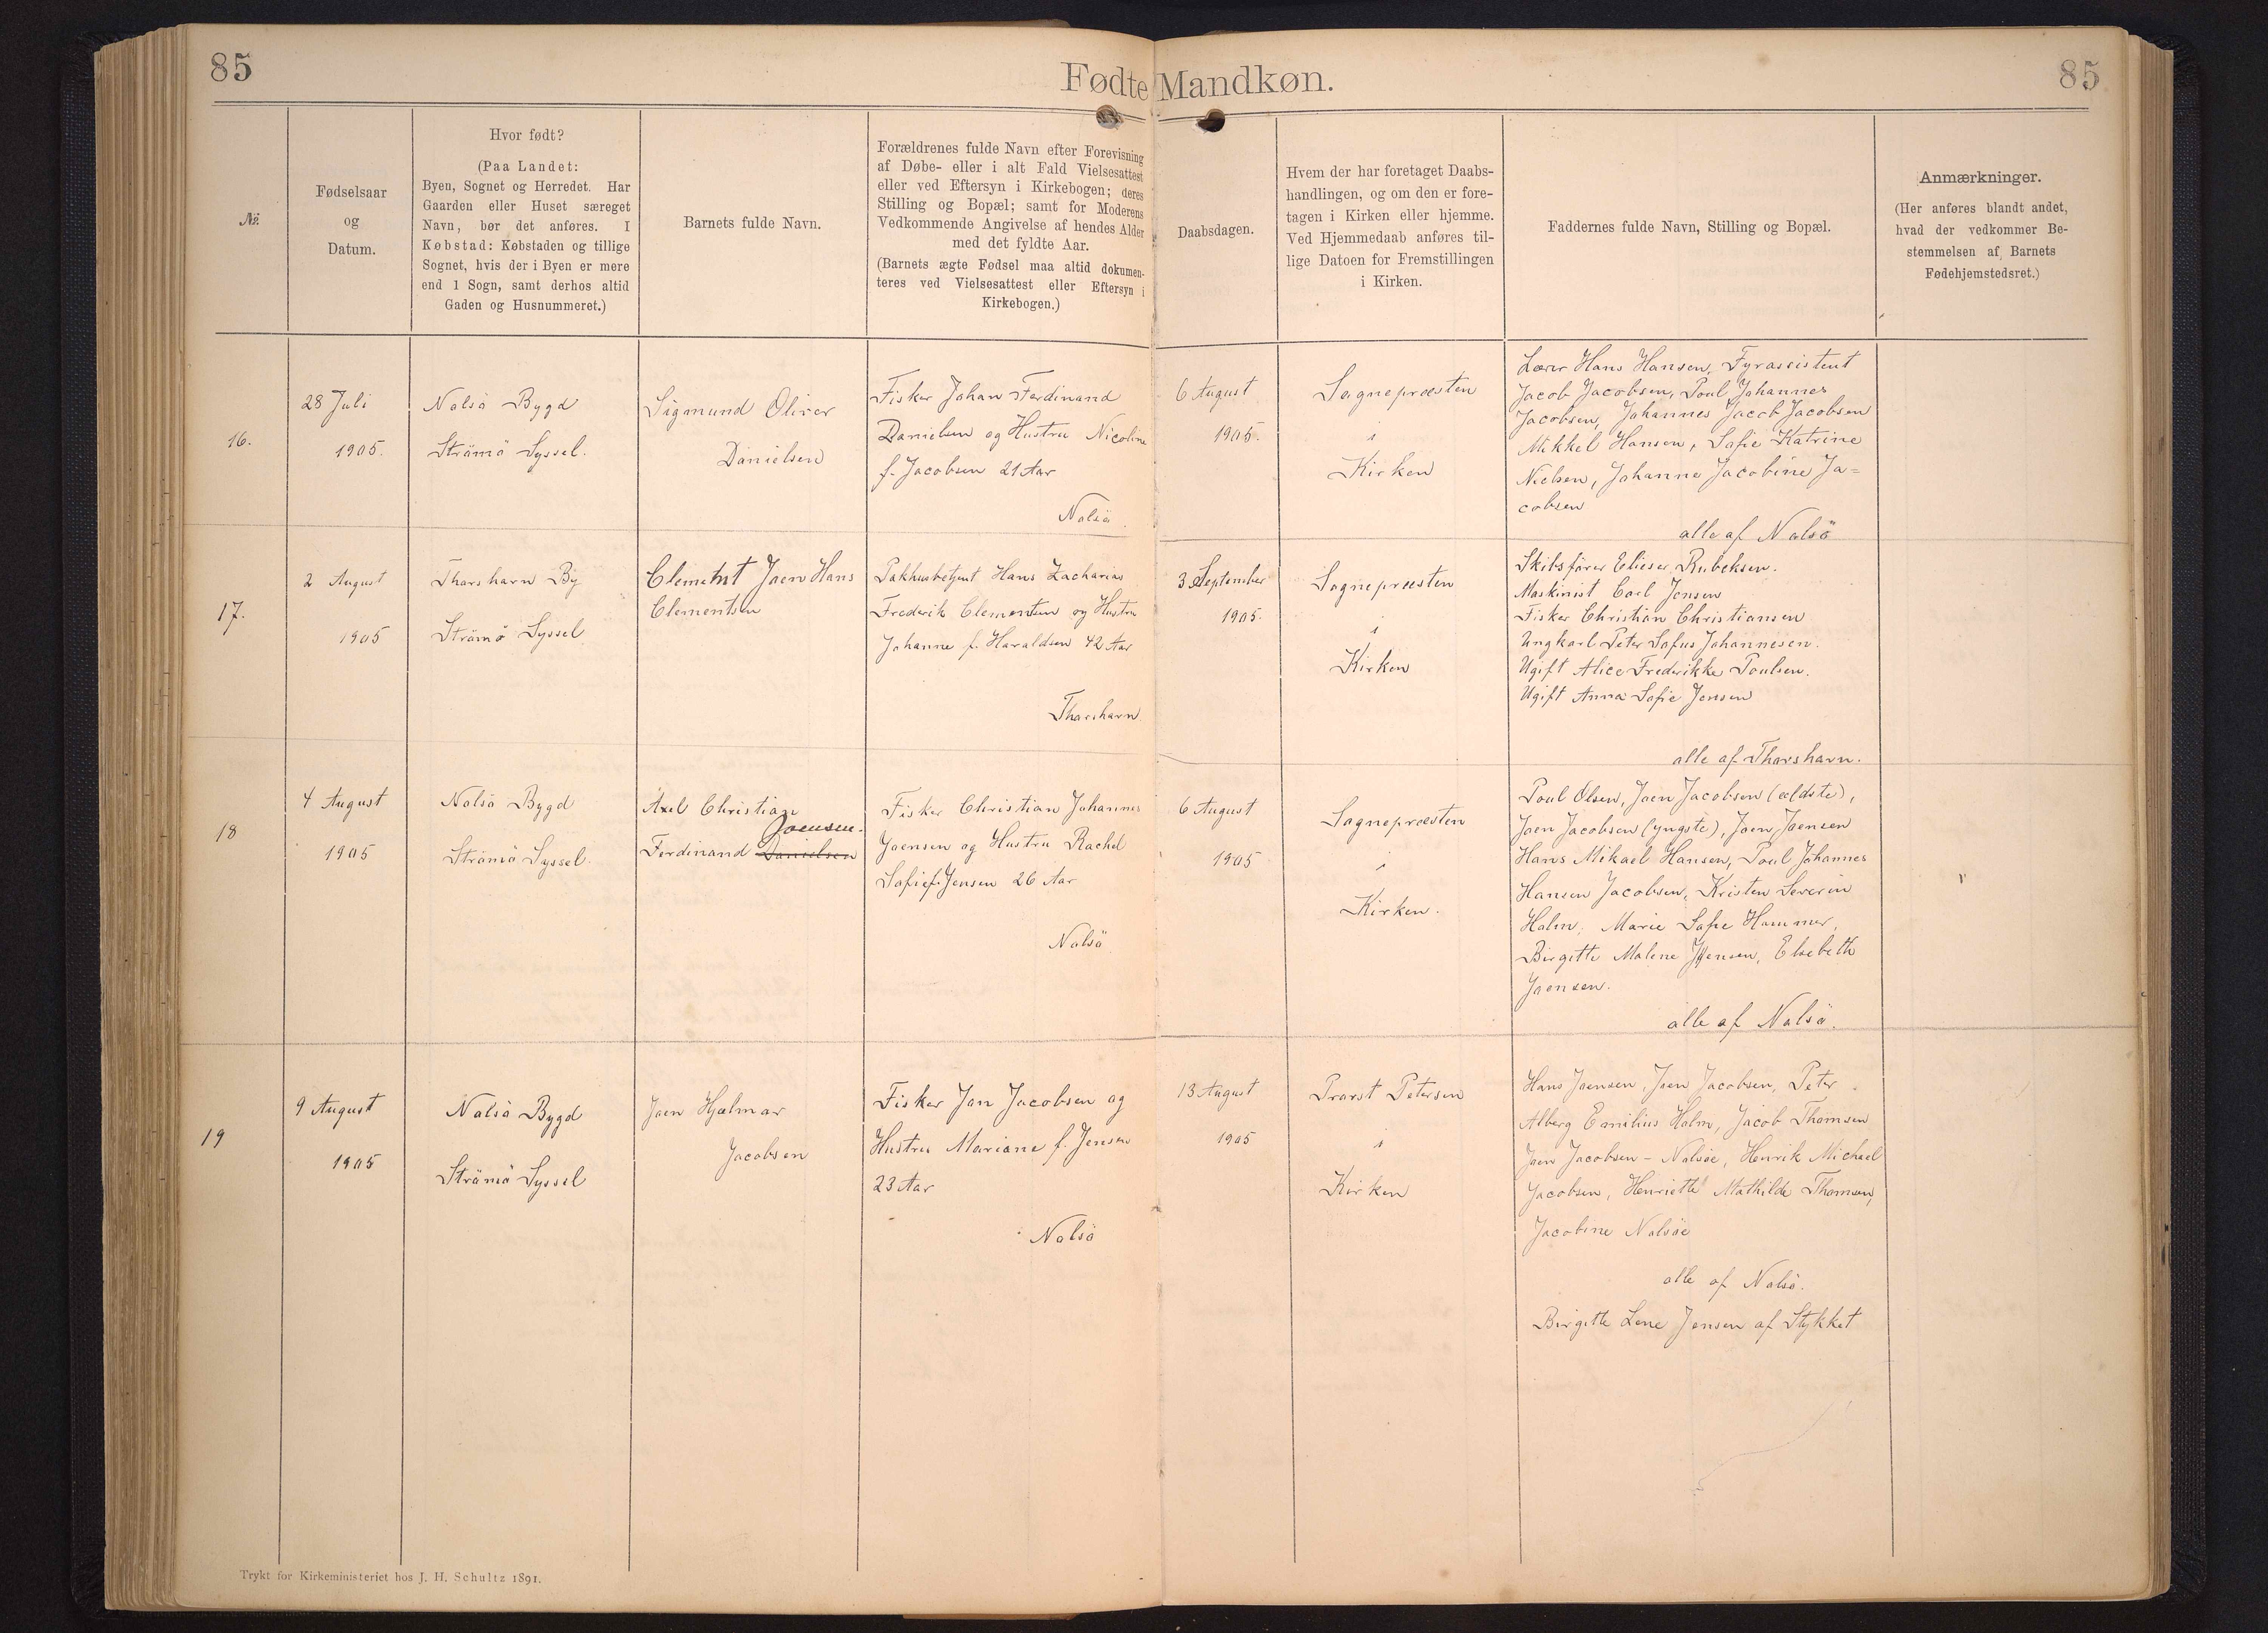 85
Fødte Mandkøn.
85
№.
Fødselsaar
og
Datum.
Hvor født?
(Paa Landet:
Byen, Sognet og Herredet. Har
Gaarden eller Huset særeget
Navn, bør det anføres. I
Købstad: Købstaden og tillige
Sognet, hvis der i Byen er mere
end 1 Sogn, samt derhos altid
Gaden og Husnummeret.)
Barnets fulde Navn.
Forældrenes fulde Navn efter Forevisning
af Døbe- eller i alt Fald Vielsesattest
eller ved Eftersyn i Kirkebogen; deres
Stilling og Bopæl; samt for Moderens
Vedkommende Angivelse af hendes Alder
med det fyldte Aar.
(Barnets ægte Fødsel maa altid dokumen-
teres ved Vielsesattest eller Eftersyn i
Kirkebogen.)
Daabsdagen.
Hvem der har foretaget Daabs-
handlingen, og om den er fore-
tagen i Kirken eller hjemme.
Ved Hjemmedaab anføres til-
lige Datoen for Fremstillingen
i Kirken.
Faddernes fulde Navn, Stilling og Bopæl.
Anmærkninger.
(Her anføres blandt andet,
hvad der vedkommer Be-
stemmelsen af Barnets
Fødehjemstedsret.)
16.
28 Juli
1905.
Nolsö Bygd
Strömö Syssel.
Sigmund Oliver
Danielsen
Fisker Johan Ferdinand
Danielsen og Hustru Nicoline
f. Jacobsen 21 Aar
Nolsö.
6 August
1905.
Sognepræsten
i
Kirken
Lærer Hans Hansen, Fyrassistent
Jacob Jacobsen, Poul Johannes
Jacobsen, Johannes Jacob Jacobsen
Mikkel Hansen, Sofie Katrine
Nielsen, Johanne Jacobine Ja=
cobsen
alle af Nolsö
17.
2 August
1905
Thorshavn By
Strömö Syssel
Clement Joen Hans
Clementsen
Pakhusbetjent Hans Zacharias
Frederik Clementsen og Hustru
Johanne f. Haraldsen 42 Aar
Thorshavn
3 September
1905.
Sognepræsten
i
Kirken
Skibsfører Elieser Rubeksen.
Maskinist Carl Jensen
Fisker Christian Christiansen
Ungkarl Peter Sofus Johannesen.
Ugift Alice Frederikke Poulsen.
Ugift Anna Sofie Jensen
alle af Thorshavn.
18
4 August
1905
Nolsö Bygd
Strömö Syssel.
Axel Christian
Joensen.
Ferdinand Danielsen
Fisker Christian Johannes
Joensen og Hustru Rachel
Sofie f. Jensen 26 Aar
Nolsö
6 August
1905
Sognepræsten
i
Kirken.
Poul Olsen, Joen Jacobsen (ældste),
Joen Jacobsen (yngste), Joen Joensen
Hans Mikael Hansen, Poul Johannes
Hansen Jacobsen, Kristen Severin
Holm, Marie Sofie Hammer,
Birgitte Malene Jensen, Elsebeth
Joensen.
alle af Nolsö.
19
9 August
1905
Nolsö Bygd
Strömö Syssel
Joen Hjalmar
Jacobsen
Fisker Jon Jacobsen og
Hustru Mariane f. Jensen
23 Aar
Nolsö
13 August
1905
Provst Petersen
i
Kirken
Hans Joensen, Joen Jacobsen, Peter
Alberg Emilius Holm, Jacob Thomsen
Joen Jacobsen - Nolsøe, Henrik Michael
Jacobsen, Henriette Mathilde Thomsen,
Jacobine Nolsøe
alle af Nolsö.
Birgitte Lene Jensen af Stykket
Trykt for Kirkeministeriet hos J. H. Schultz 1891.